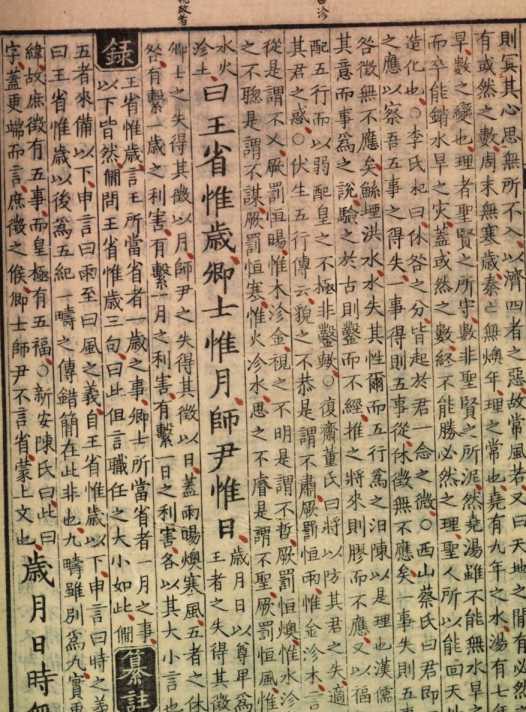 則冥其心思無所不入以濟四者之惡故常風若又曰天地之間有必然
有或然之數周末無寒歲秦亡無燠年理之常也堯有九年之水湯有七年
旱數之變也理者聖賢之所守數非聖賢之所泥然堯湯雖不能無水旱之
而卒能銷水旱之灾蓋或然之數終不能勝必然之理聖人所以能面天地
造化也○李氏杞曰休咎之分皆起於君一念之微○西山蔡氏曰君即
之應以察吾五事之得失一事得則五事從休徵無不應矣一事失則五事
咎徵無不應矣鯀堙洪水水失其性爾而五行爲之汨陳以是理也漢儒
其意而事爲之說驗之於古則鑿而不經推之將來則膠而不應又以福
配五行而以弱配皇之不極非鑿歟○復齋董氏曰將以防其君之失適
其君之惑○伏生五行傳云貌之不恭是謂不肅厥罰恒雨惟金沴木言
從是謂不乂厥罰恒暘惟木沴金視之不明是謂不哲厥罰恒燠惟水沴
之不聰是謂不謀厥罰恒寒惟火沴水思之不睿是謂不聖厥罰恒風惟
水火
沴土
曰王省惟歲卿士惟月師尹惟日
歲月日以尊卑爲
王者之失得其徵
卿士之失得其徵以月師尹之失得其徵以日蓋雨暘燠寒風五者之休
咎有繫一歲之利害有繫一月之利害有繫一日之利害各以其大小言也
錄
王省惟歲言王所當省者一歲之事卿士所當省者一月之事
以下皆然僩問王省惟歲三句曰此但言職任之大小如此僩
纂註
五者來備以下申言曰雨至曰風之義自王省惟歲以下申言曰時之義
曰王省惟歲以後爲五紀一疇之傳錯簡在此非也九疇雖別爲九實更
緯故庶徵有五事而皇極有五福○新安陳氏曰此曰
字蓋更端而言庶徵之候卿士師尹不言省蒙上文也
歲月日時無